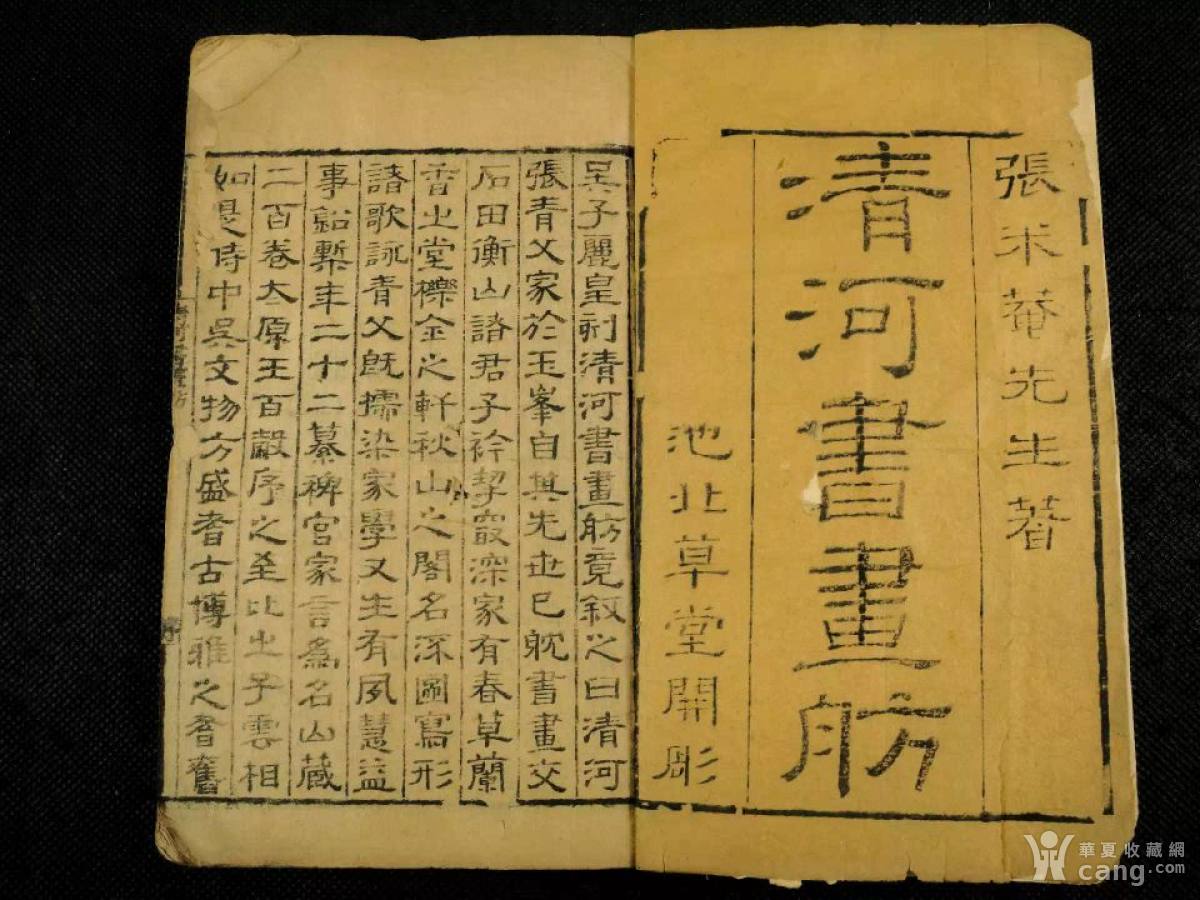 張米菴先生著
清河書畫舫
池北草堂開彫
吳子麗皇刻清河書畫舫竟敘之曰清河
張青父家於玉峯自其先世已耽書畫交
石田衡山諸君子衿契最深家有春草蘭
香之堂櫟金之軒秋山之閣名流圖寫形
諸歌詠青父既擩染家學又生有夙慧益
事鉛槧年二十二纂稗官家言為名山藏
二百卷太原王百穀序之至比之子雲相
如是時中吳文物方盛耆古博雅之耆舊
華夏收藏網
cang.com